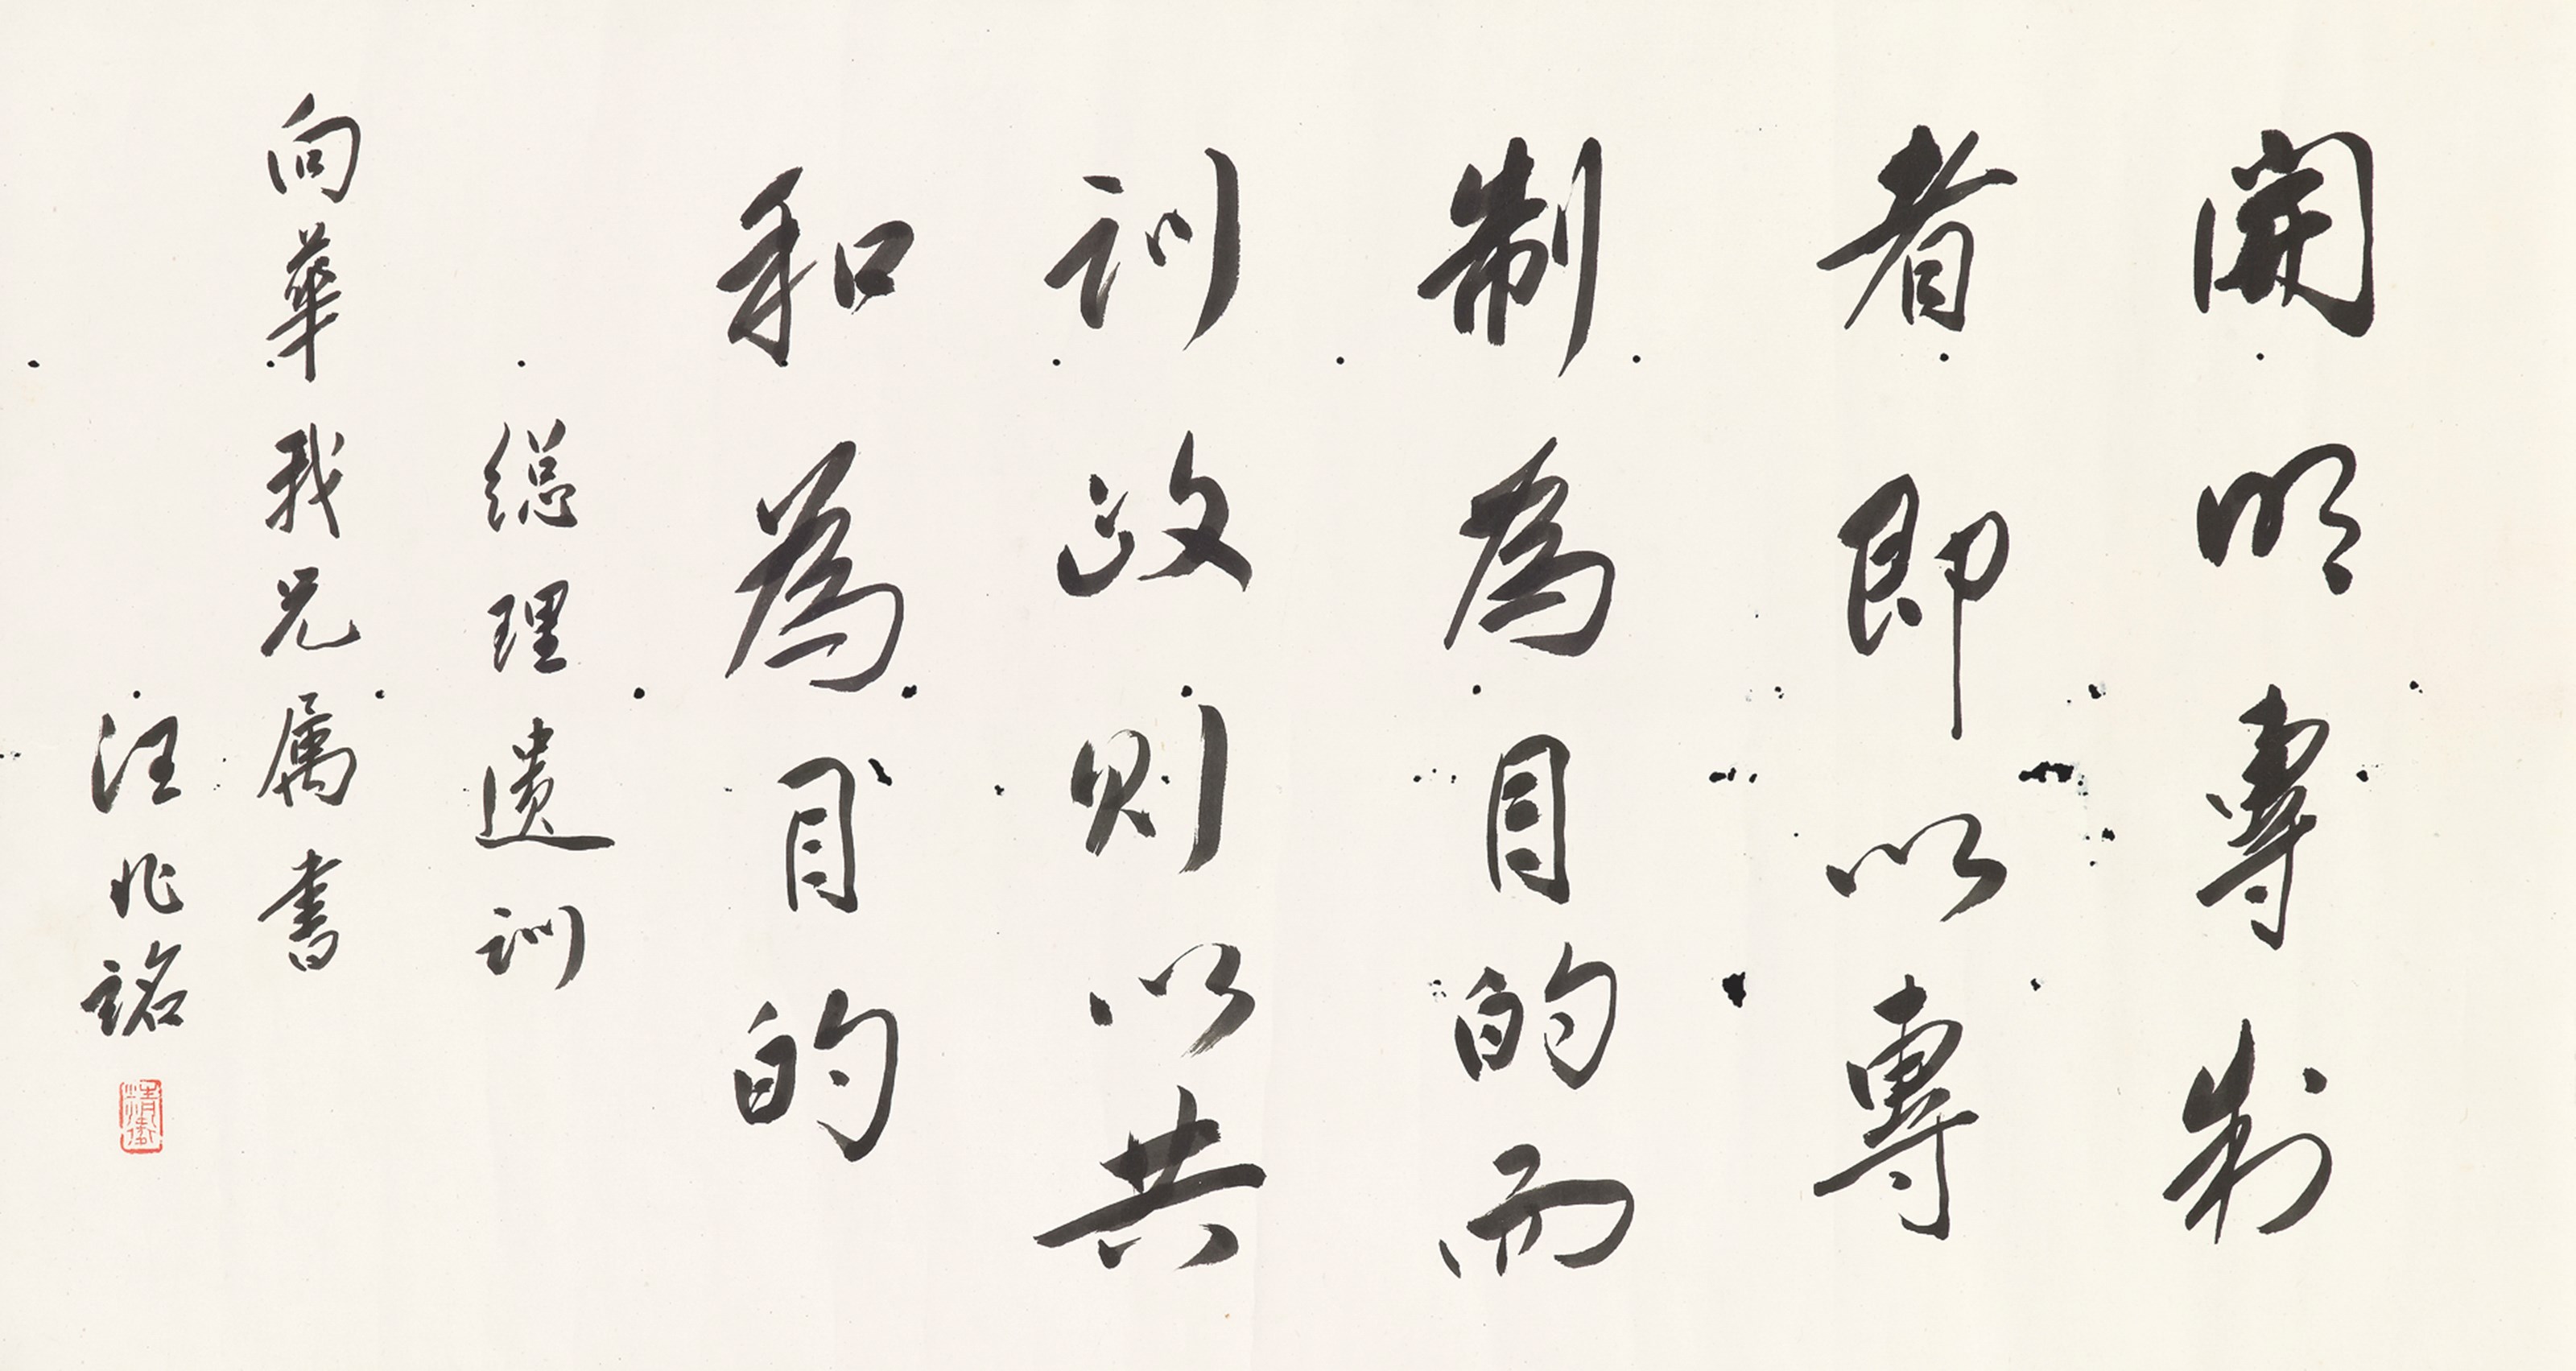 開明專制
者即以專
制為目的而
訓政則以共
和為目的
総理遺訓
向華我兄属書
汪兆銘
精衞